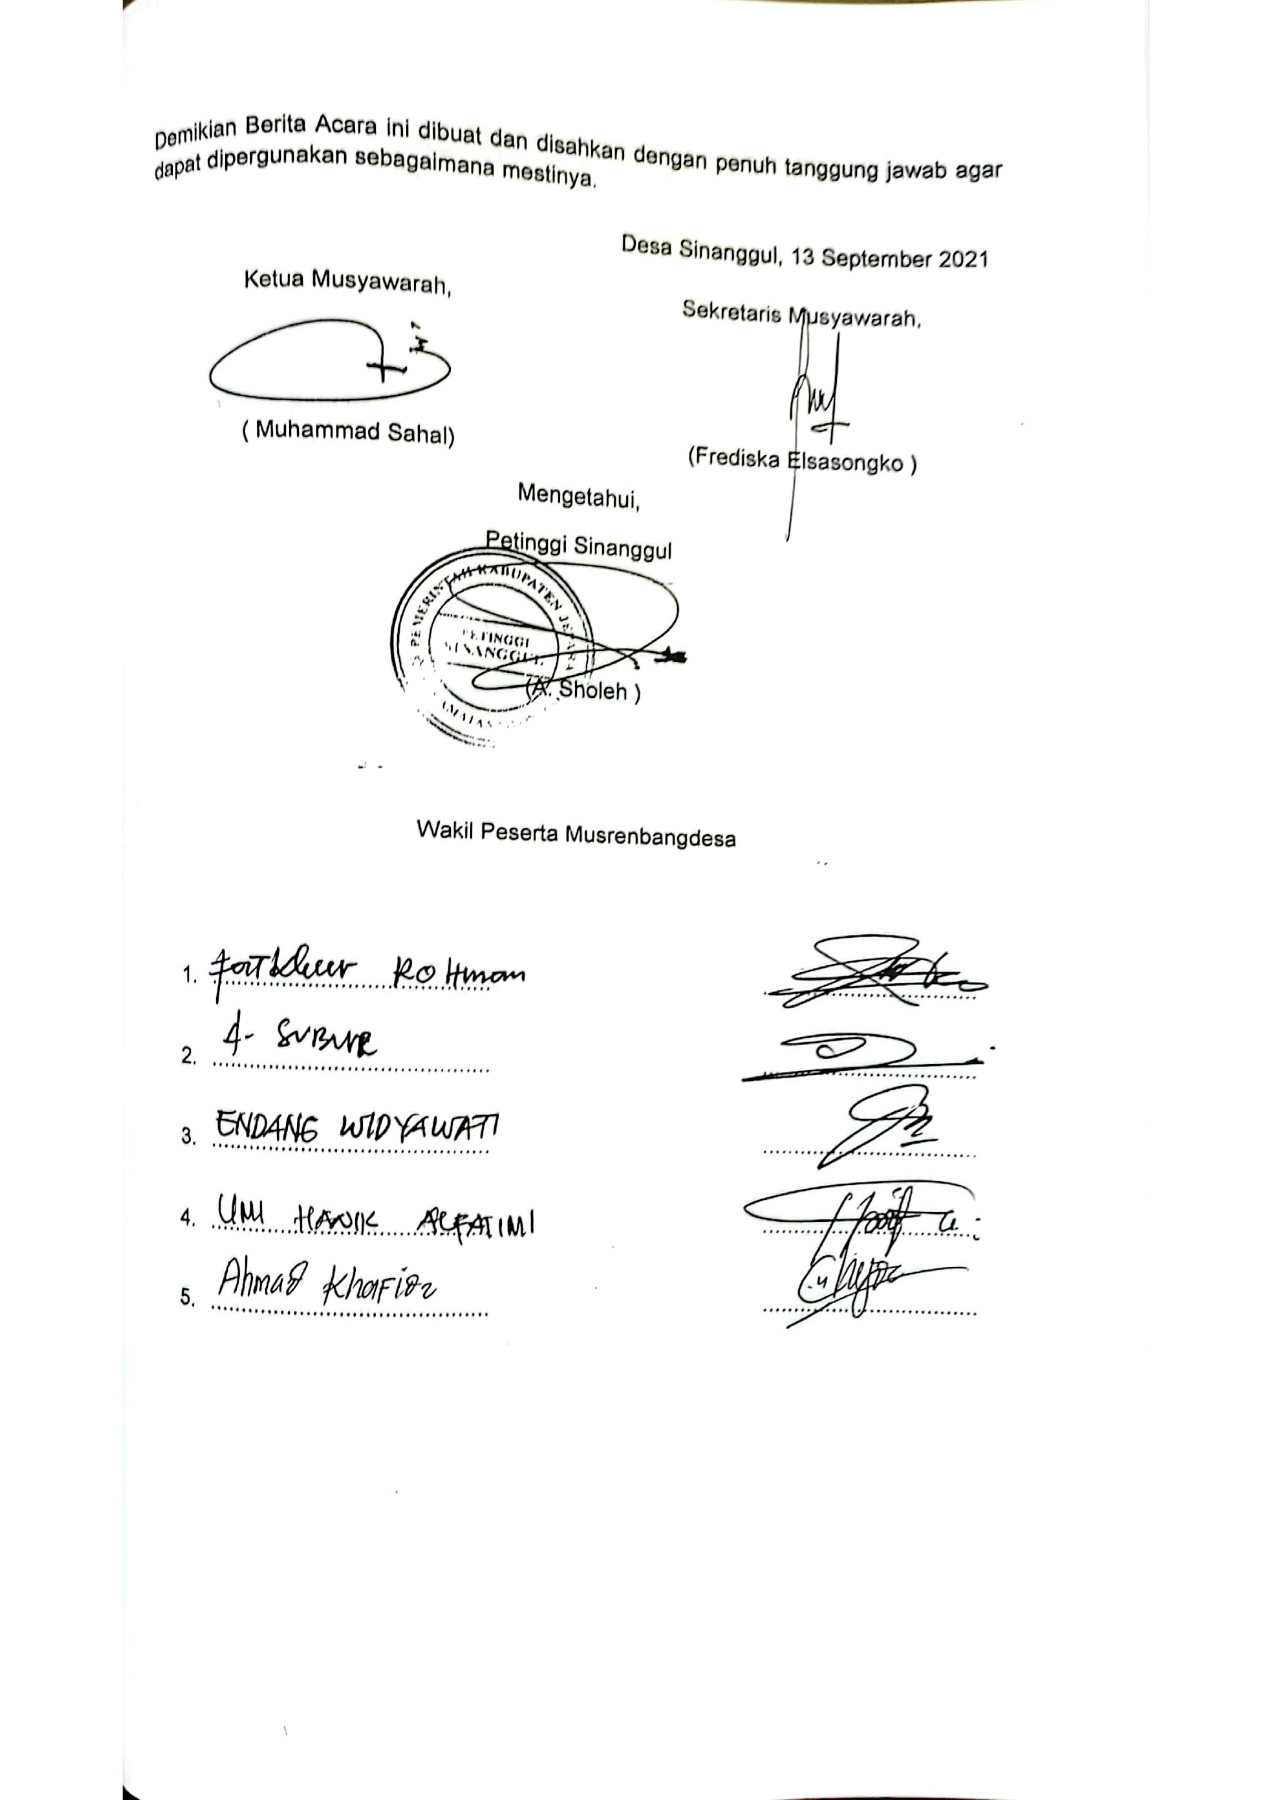 Demikian Berita Acara ini dibuat dan disahkan dengan penuh tanggung jawab agar
dapat dipergunakan sebagaimana mestinya.
Desa Sinanggul, 13 September 2021
Ketua Musyawarah,
Sekretaris Musyawarah,
( Muhammad Sahal)
(Frediska Elsasongko )
Mengetahui,
Petinggi Sinanggul
PEMERINTAH KABUPATEN
PETINGGI
SINANGGUL
(A. Sholeh )
Wakil Peserta Musrenbangdesa
1. Rohman
2. A- SUBUR
3. ENDANG WIDYAWATI
4. UMI HANIK ALFATIMI
5. Ahmad